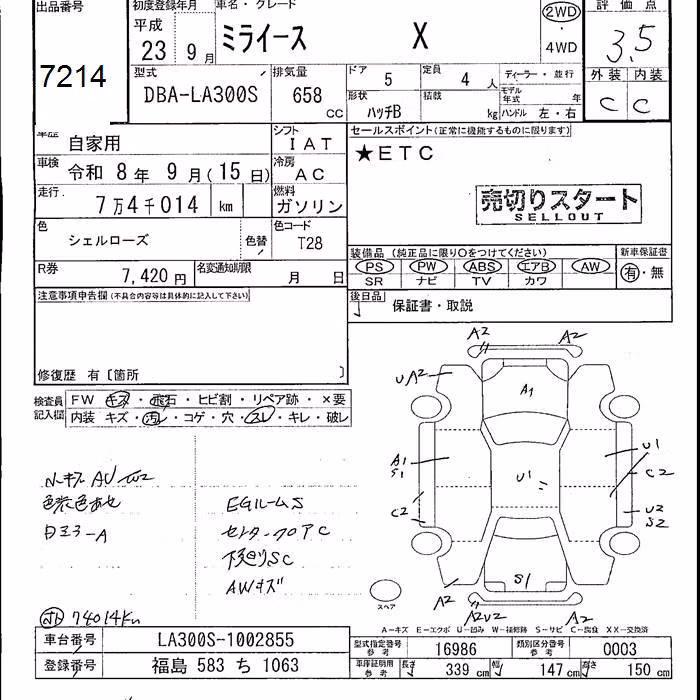 出品番号
初度登録年月 車名・グレード
平成 23年 9月
ミライース X
2WD
4WD
評価点
3.5
外装 内装
C C
7214
型式
DBA-LA300S
排気量
658 CC
ドア 5
定員 4 人
ディーラー・並行
形状
ハッチB
積載 kg
モデル年式 年
ハンドル 左・右
車歴 自家用
シフト
IAT
セールスポイント(正常に機能するものに限ります)
★ETC
車検 令和 8年 9月(15日)
冷房
AC
走行 7万4千014 km
燃料
ガソリン
売切りスタート
SELLOUT
色 シェルローズ
色替
色コード
T28
装備品(純正品に限り○をつけてください)
新車保証書
PS PW ABS エアB AW
SR ナビ TV カワ
有・無
R券 7,420円
名変通知期限 月 日
後日品 保証書・取説
注意事項申告欄(不具合内容等は具体的に記入して下さい)
修復歴 有〔箇所 〕
検査員記入欄
FW キズ・飛石・ヒビ割・リペア跡・×要
内装 キズ・汚レ・コゲ・穴・スレ・キレ・破レ
A2 A2
UA2
A1
A1
S1
U1
U1
C2
C2
U2
S2
S1
A2
A2U2
A2
EGルームS
下廻りSC
AWキズ
74014km
スペア
A-キズ E-エクボ U-凹み W-補修跡 S-サビ C-腐食 XX-交換済
車台番号 LA300S-1002855
登録番号 福島 583 ち 1063
型式指定番号 参考 16986
類別区分番号 参考 0003
車庫証明用 参考 長さ 339 cm 幅 147 cm 高さ 150 cm